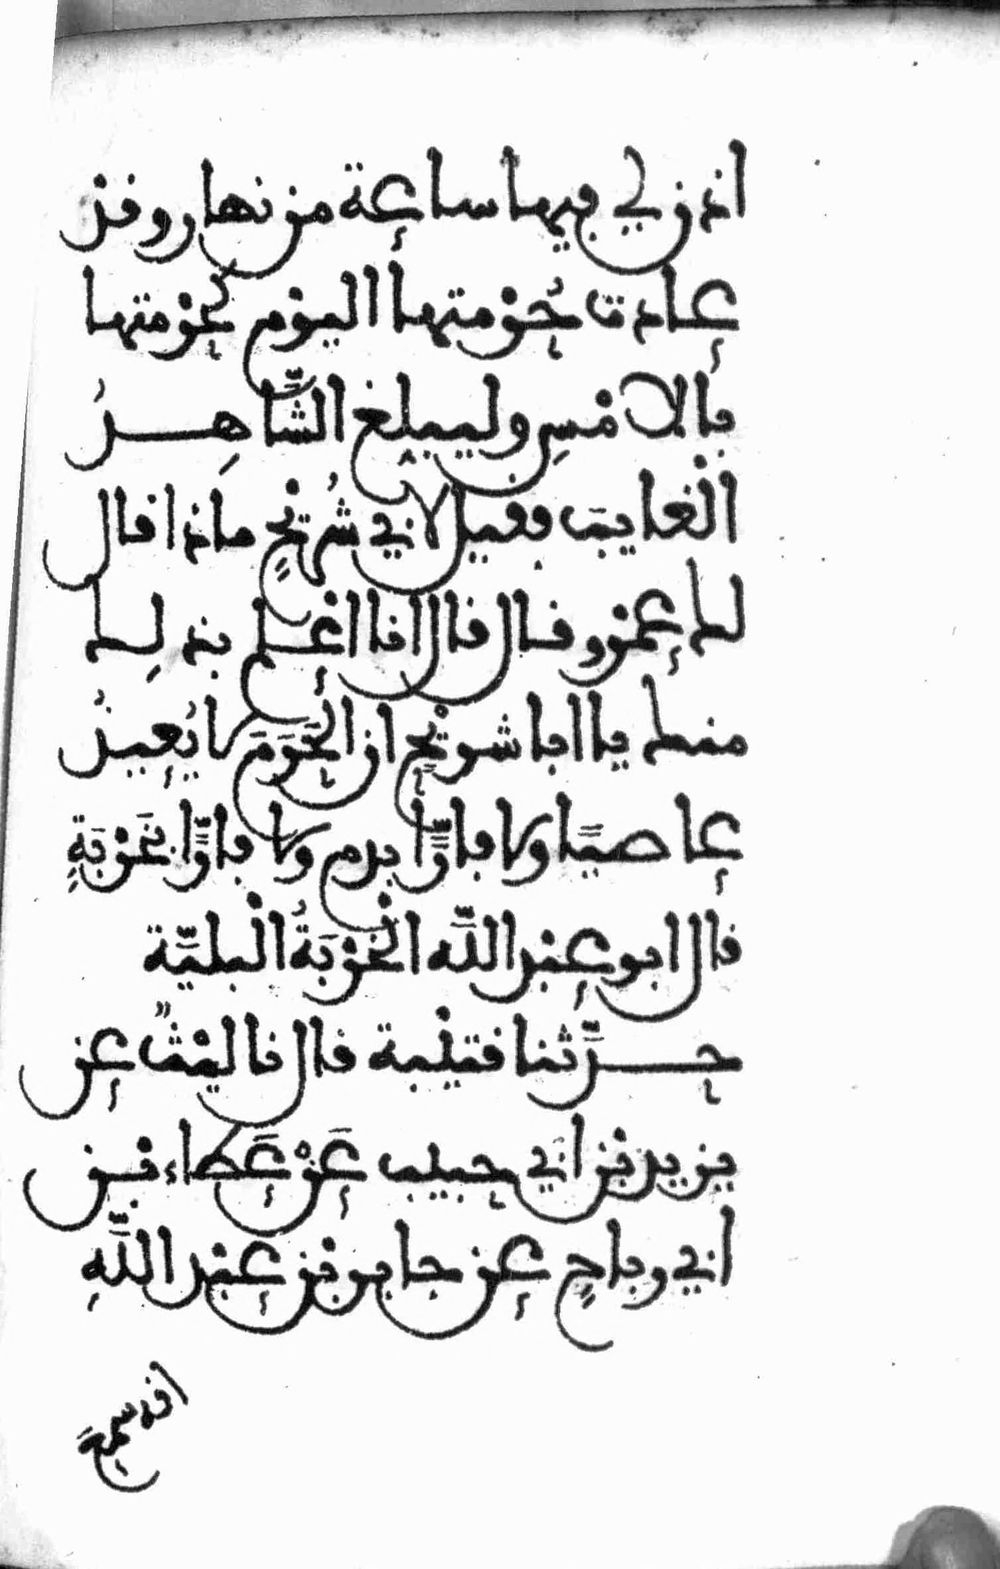 اذن لي فيها ساعة من نهار وقد
عادت حُرْمتها اليوْم كحرْمتها
بالامْسِ وليبلغ الشّاهِدُ
الْغايبَ فقيل لابي شُريْحٍ ماذا قال
له عمْرو قال قال انا اعْلم بذلِك
منك يا ابا شريْحٍ ان الحَرَمَ لا يُعِيذُ
عاصيًا ولا فارًّا بدم ولا فارًّا بخَرْبَةٍ
قال ابو عبْد اللّه الخَرْبَةُ الْبليّة
حدّثنا قتيْبة قال نا ليْثٌ عن
يزيد بْن ابي حبيب عَنْ عَطاء بْن
ابي رباحٍ عن جابر بْن عبْد اللّهِ
انه سمِعَ